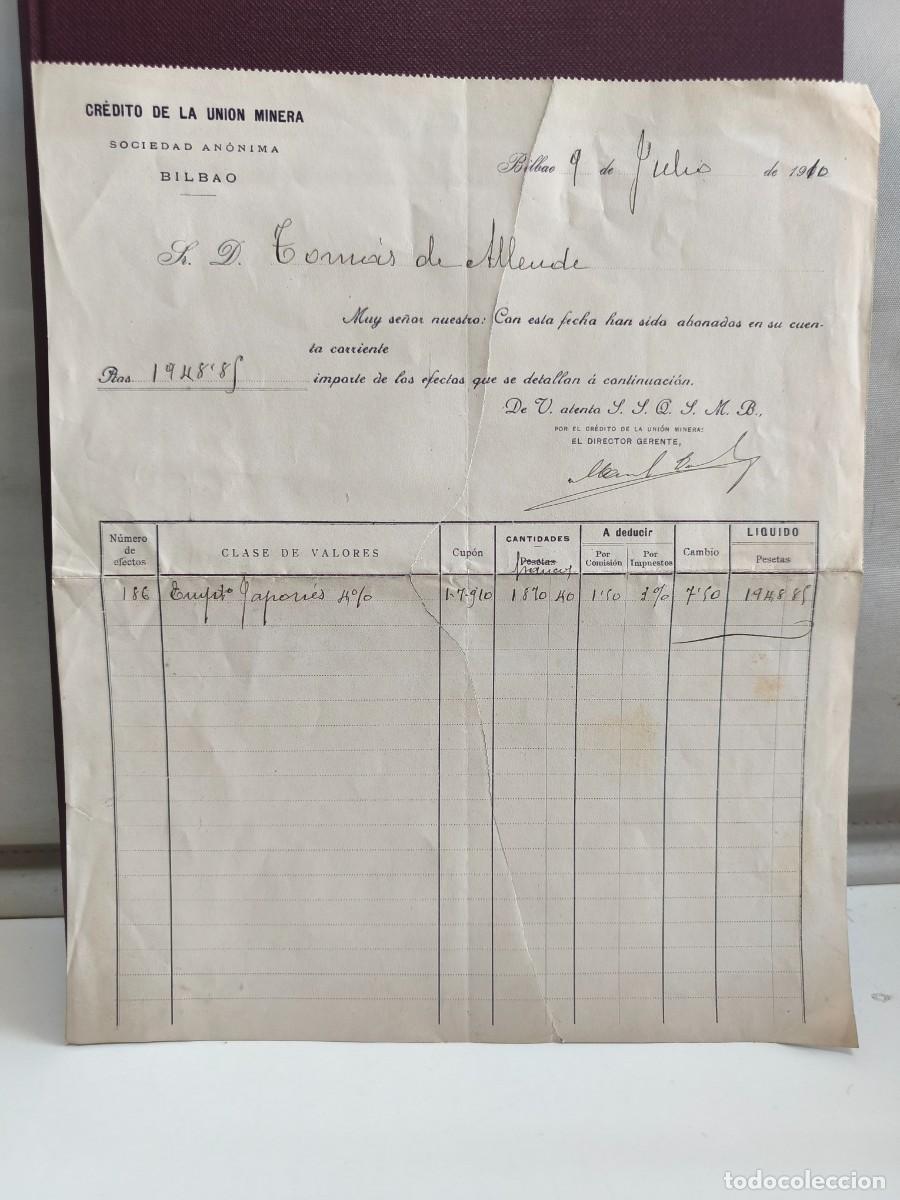 CRÉDITO DE LA UNION MINERA
SOCIEDAD ANÓNIMA
BILBAO
Bilbao 9 de Julio de 1910
Sr. D. Tomás de Allende
Muy señor nuestro: Con esta fecha han sido abonados en su cuen-
ta corriente
Ptas. 1948'85 importe de los efectos que se detallan á continuación.
De V. atento S. S. Q. S. M. B.,
POR EL CRÉDITO DE LA UNIÓN MINERA:
EL DIRECTOR GERENTE,
Número de efectos CLASE DE VALORES Cupón CANTIDADES Pesetas francos A deducir Por Comisión Por Impuestos Cambio LIQUIDO Pesetas
186 Empto Japonés 4% 1-7-910 1870 40 1'50 3% 7'50 1948 85
todocoleccion